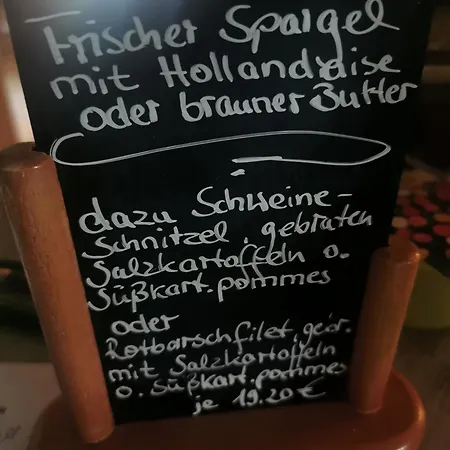 Frischer Spargel
mit Hollandaise
oder brauner Butter
dazu Schweine-
schnitzel, gebraten
Salzkartoffeln o.
Süßkart.pommes
oder
Rotbarschfilet, gebr.
mit Salzkartoffeln
o. Süßkart.pommes
je 19.20 €